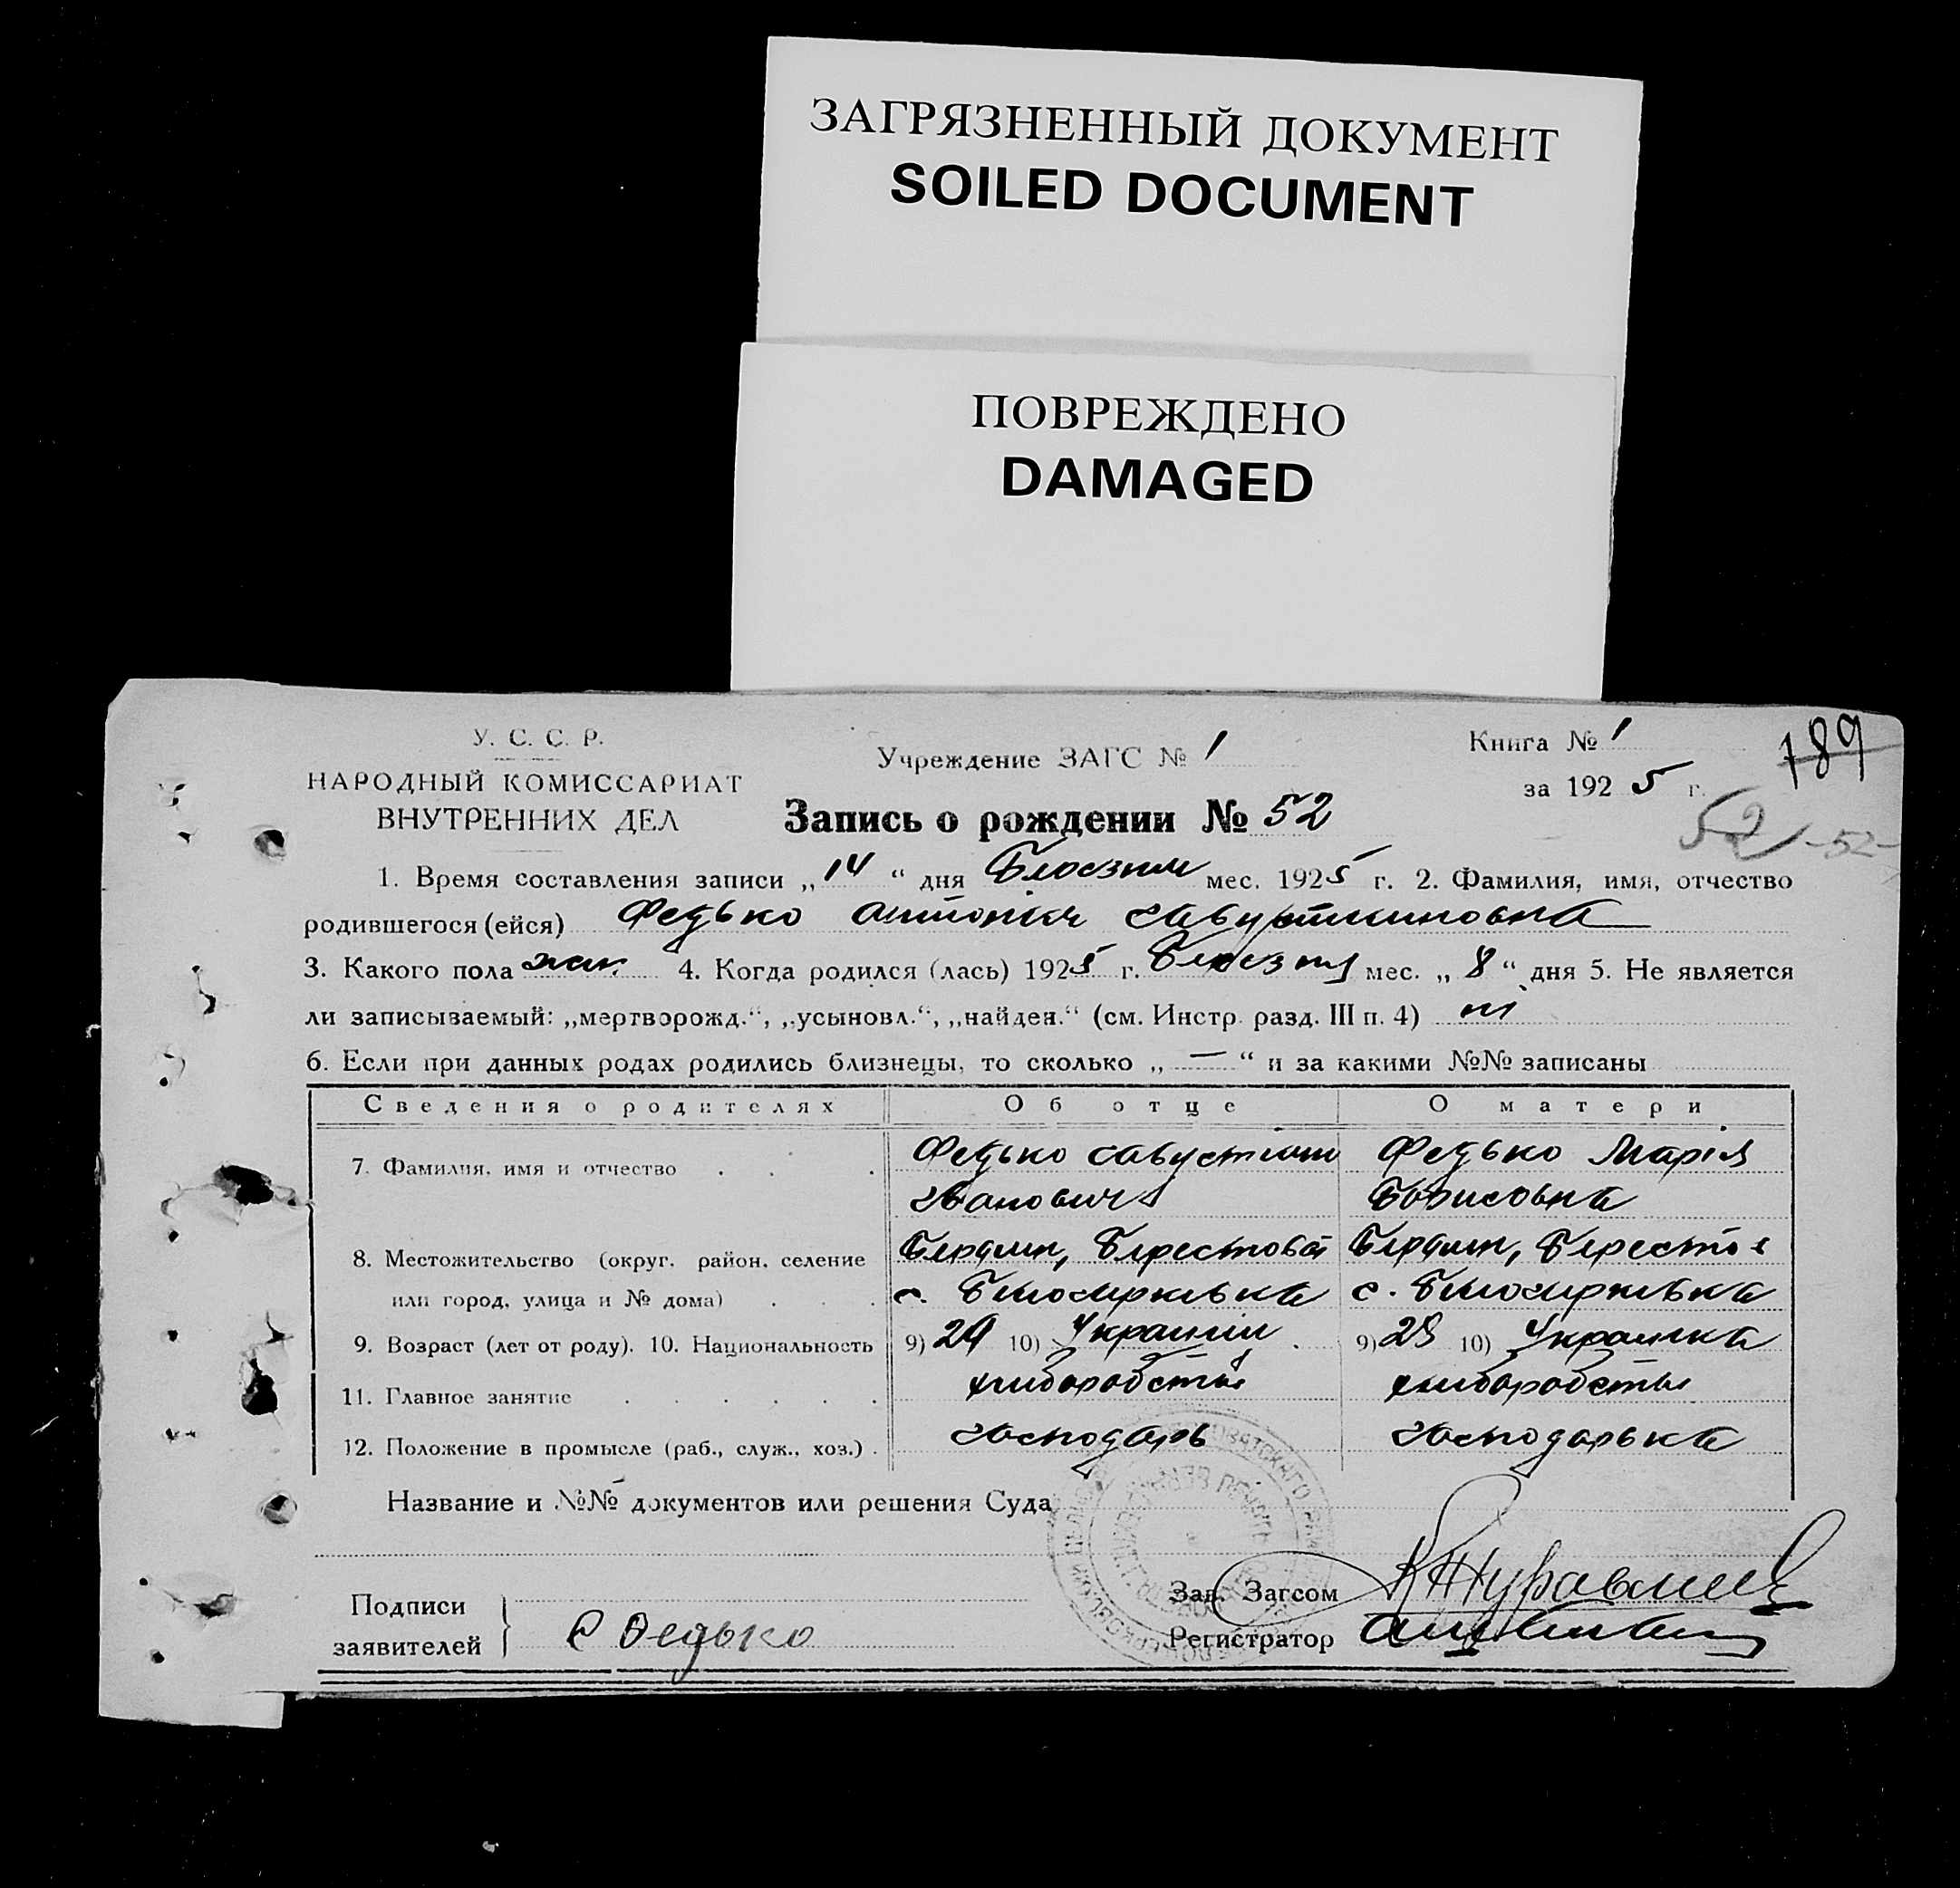 ЗАГРЯЗНЕННЫЙ ДОКУМЕНТ
SOILED DOCUMENT
ПОВРЕЖДЕНО
DAMAGED
У. С. С. Р.
НАРОДНЫЙ КОМИССАРИАТ
ВНУТРЕННИХ ДЕЛ
Учреждение ЗАГС № 1
Книга № 1
за 1925 г.
789
52 -52-
Запись о рождении № 52
1. Время составления записи „14“ дня Березня мес. 1925 г. 2. Фамилия, имя, отчество
родившегося (ейся) Федько Антонія
3. Какого пола жін. 4. Когда родился (лась) 1925 г. Березня мес. „8“ дня 5. Не является
ли записываемый: „мертворожд.“, „усыновл.“, „найден.“ (см. Инстр. разд. III п. 4) ні
6. Если при данных родах родились близнецы, то сколько „—“ и за какими №№ записаны
Сведения о родителях Об отце О матери
7. Фамилия, имя и отчество Федько Савустіян Федько Марія
Іванович Борисовна
8. Местожительство (округ, район, селение Бердян, Берестов Бердян, Берест
или город, улица и № дома) с. Білоцерківка с. Білоцерківка
9. Возраст (лет от роду). 10. Национальность 9) 29 10) Українець 9) 10) Українка
11. Главное занятие хліборобство хліборобство
12. Положение в промысле (раб., служ., хоз.) Господарь Господарька
Название и №№ документов или решения Суда
Зав. Загсом
Подписи
заявителей С Федько
Регистратор